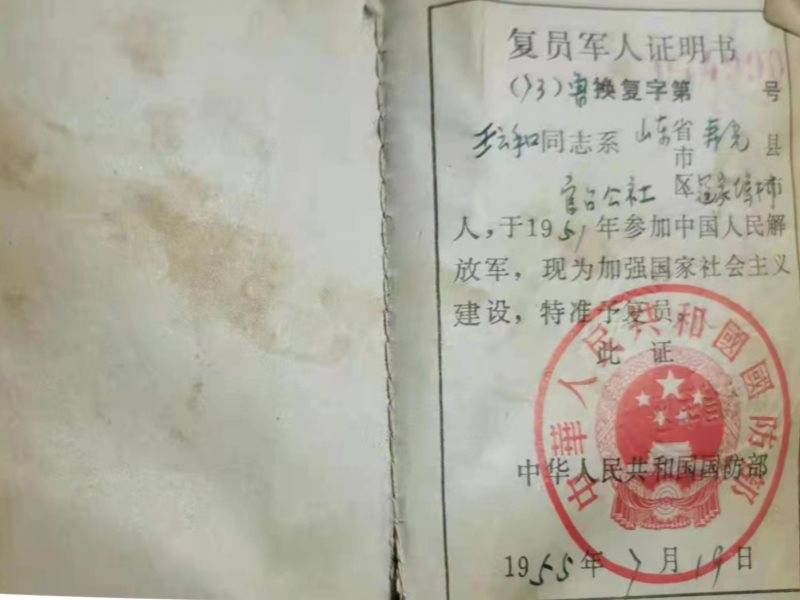 复员军人证明书
(73)鲁换复字第 号
王云和同志系山东省寿光县
市
官台公社区寇家坞村市
人，于1951年参加中国人民解
放军，现为加强国家社会主义
建设，特准予复员。
此证
中華人民共和國國防部
中华人民共和国国防部
1955年7月19日